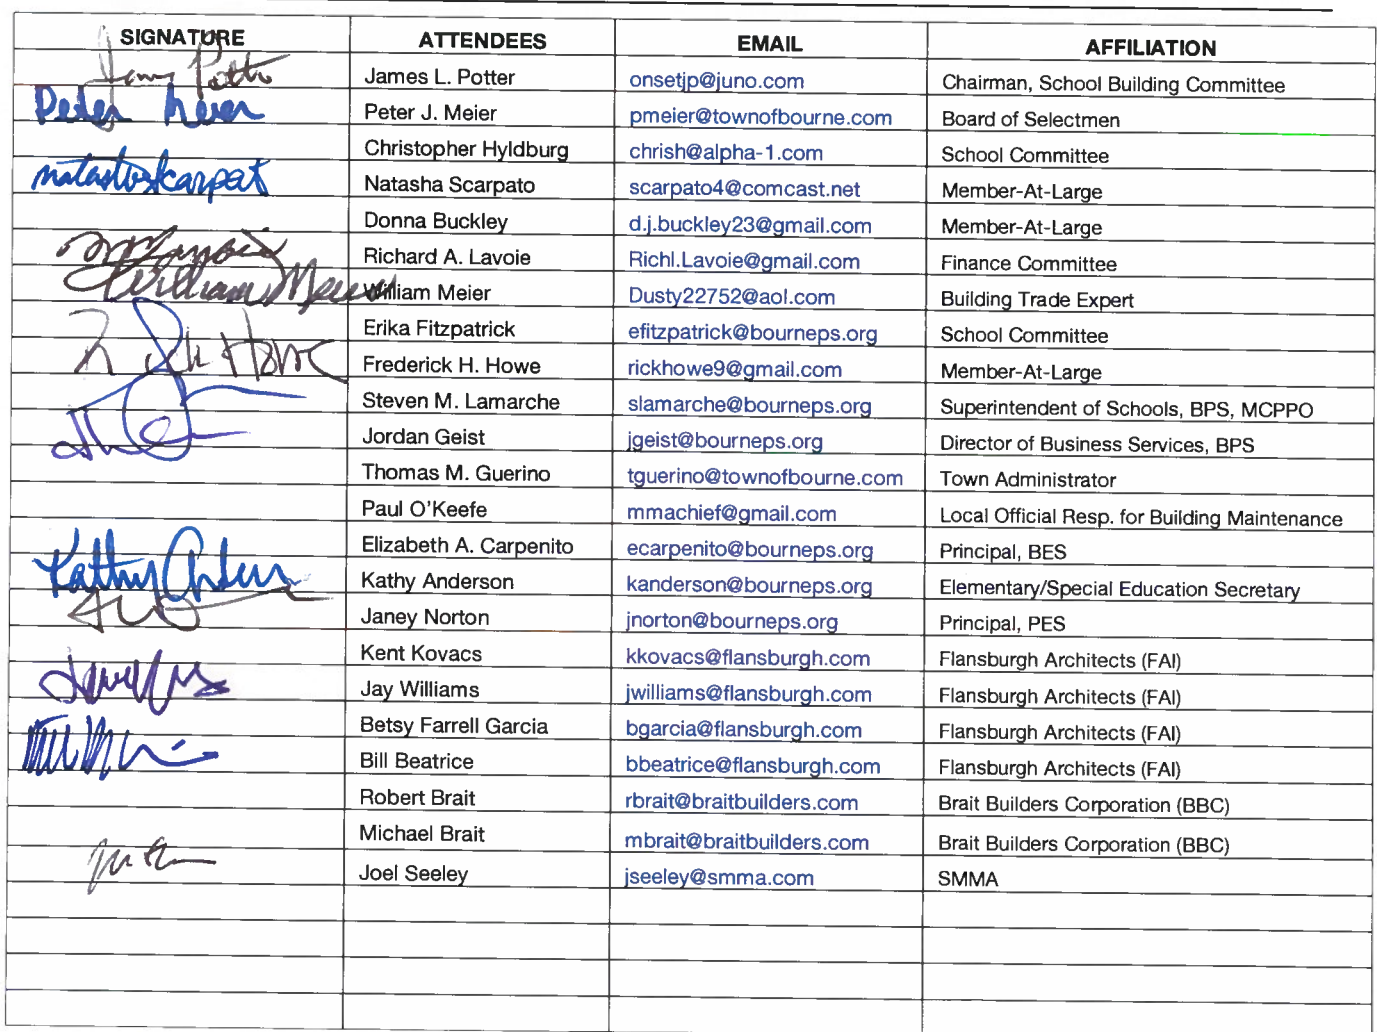 SIGNATURE ATTENDEES EMAIL AFFILIATION
James L. Potter onsetjp@juno.com Chairman, School Building Committee
Peter Meier Peter J. Meier pmeier@townofbourne.com Board of Selectmen
Christopher Hyldburg chrish@alpha-1.com School Committee
Natasha Scarpato scarpato4@comcast.net Member-At-Large
Donna Buckley d.j.buckley23@gmail.com Member-At-Large
Richard A. Lavoie Richl.Lavoie@gmail.com Finance Committee
William Meier William Meier Dusty22752@aol.com Building Trade Expert
Erika Fitzpatrick efitzpatrick@bourneps.org School Committee
Howe Frederick H. Howe rickhowe9@gmail.com Member-At-Large
Steven M. Lamarche slamarche@bourneps.org Superintendent of Schools, BPS, MCPPO
Jordan Geist jgeist@bourneps.org Director of Business Services, BPS
Thomas M. Guerino tguerino@townofbourne.com Town Administrator
Paul O'Keefe mmachief@gmail.com Local Official Resp. for Building Maintenance
Elizabeth A. Carpenito ecarpenito@bourneps.org Principal, BES
Kathy Kathy Anderson kanderson@bourneps.org Elementary/Special Education Secretary
Janey Norton jnorton@bourneps.org Principal, PES
Kent Kovacs kkovacs@flansburgh.com Flansburgh Architects (FAI)
Jay Williams jwilliams@flansburgh.com Flansburgh Architects (FAI)
Betsy Farrell Garcia bgarcia@flansburgh.com Flansburgh Architects (FAI)
Bill Beatrice bbeatrice@flansburgh.com Flansburgh Architects (FAI)
Robert Brait rbrait@braitbuilders.com Brait Builders Corporation (BBC)
Michael Brait mbrait@braitbuilders.com Brait Builders Corporation (BBC)
Joel Seeley jseeley@smma.com SMMA